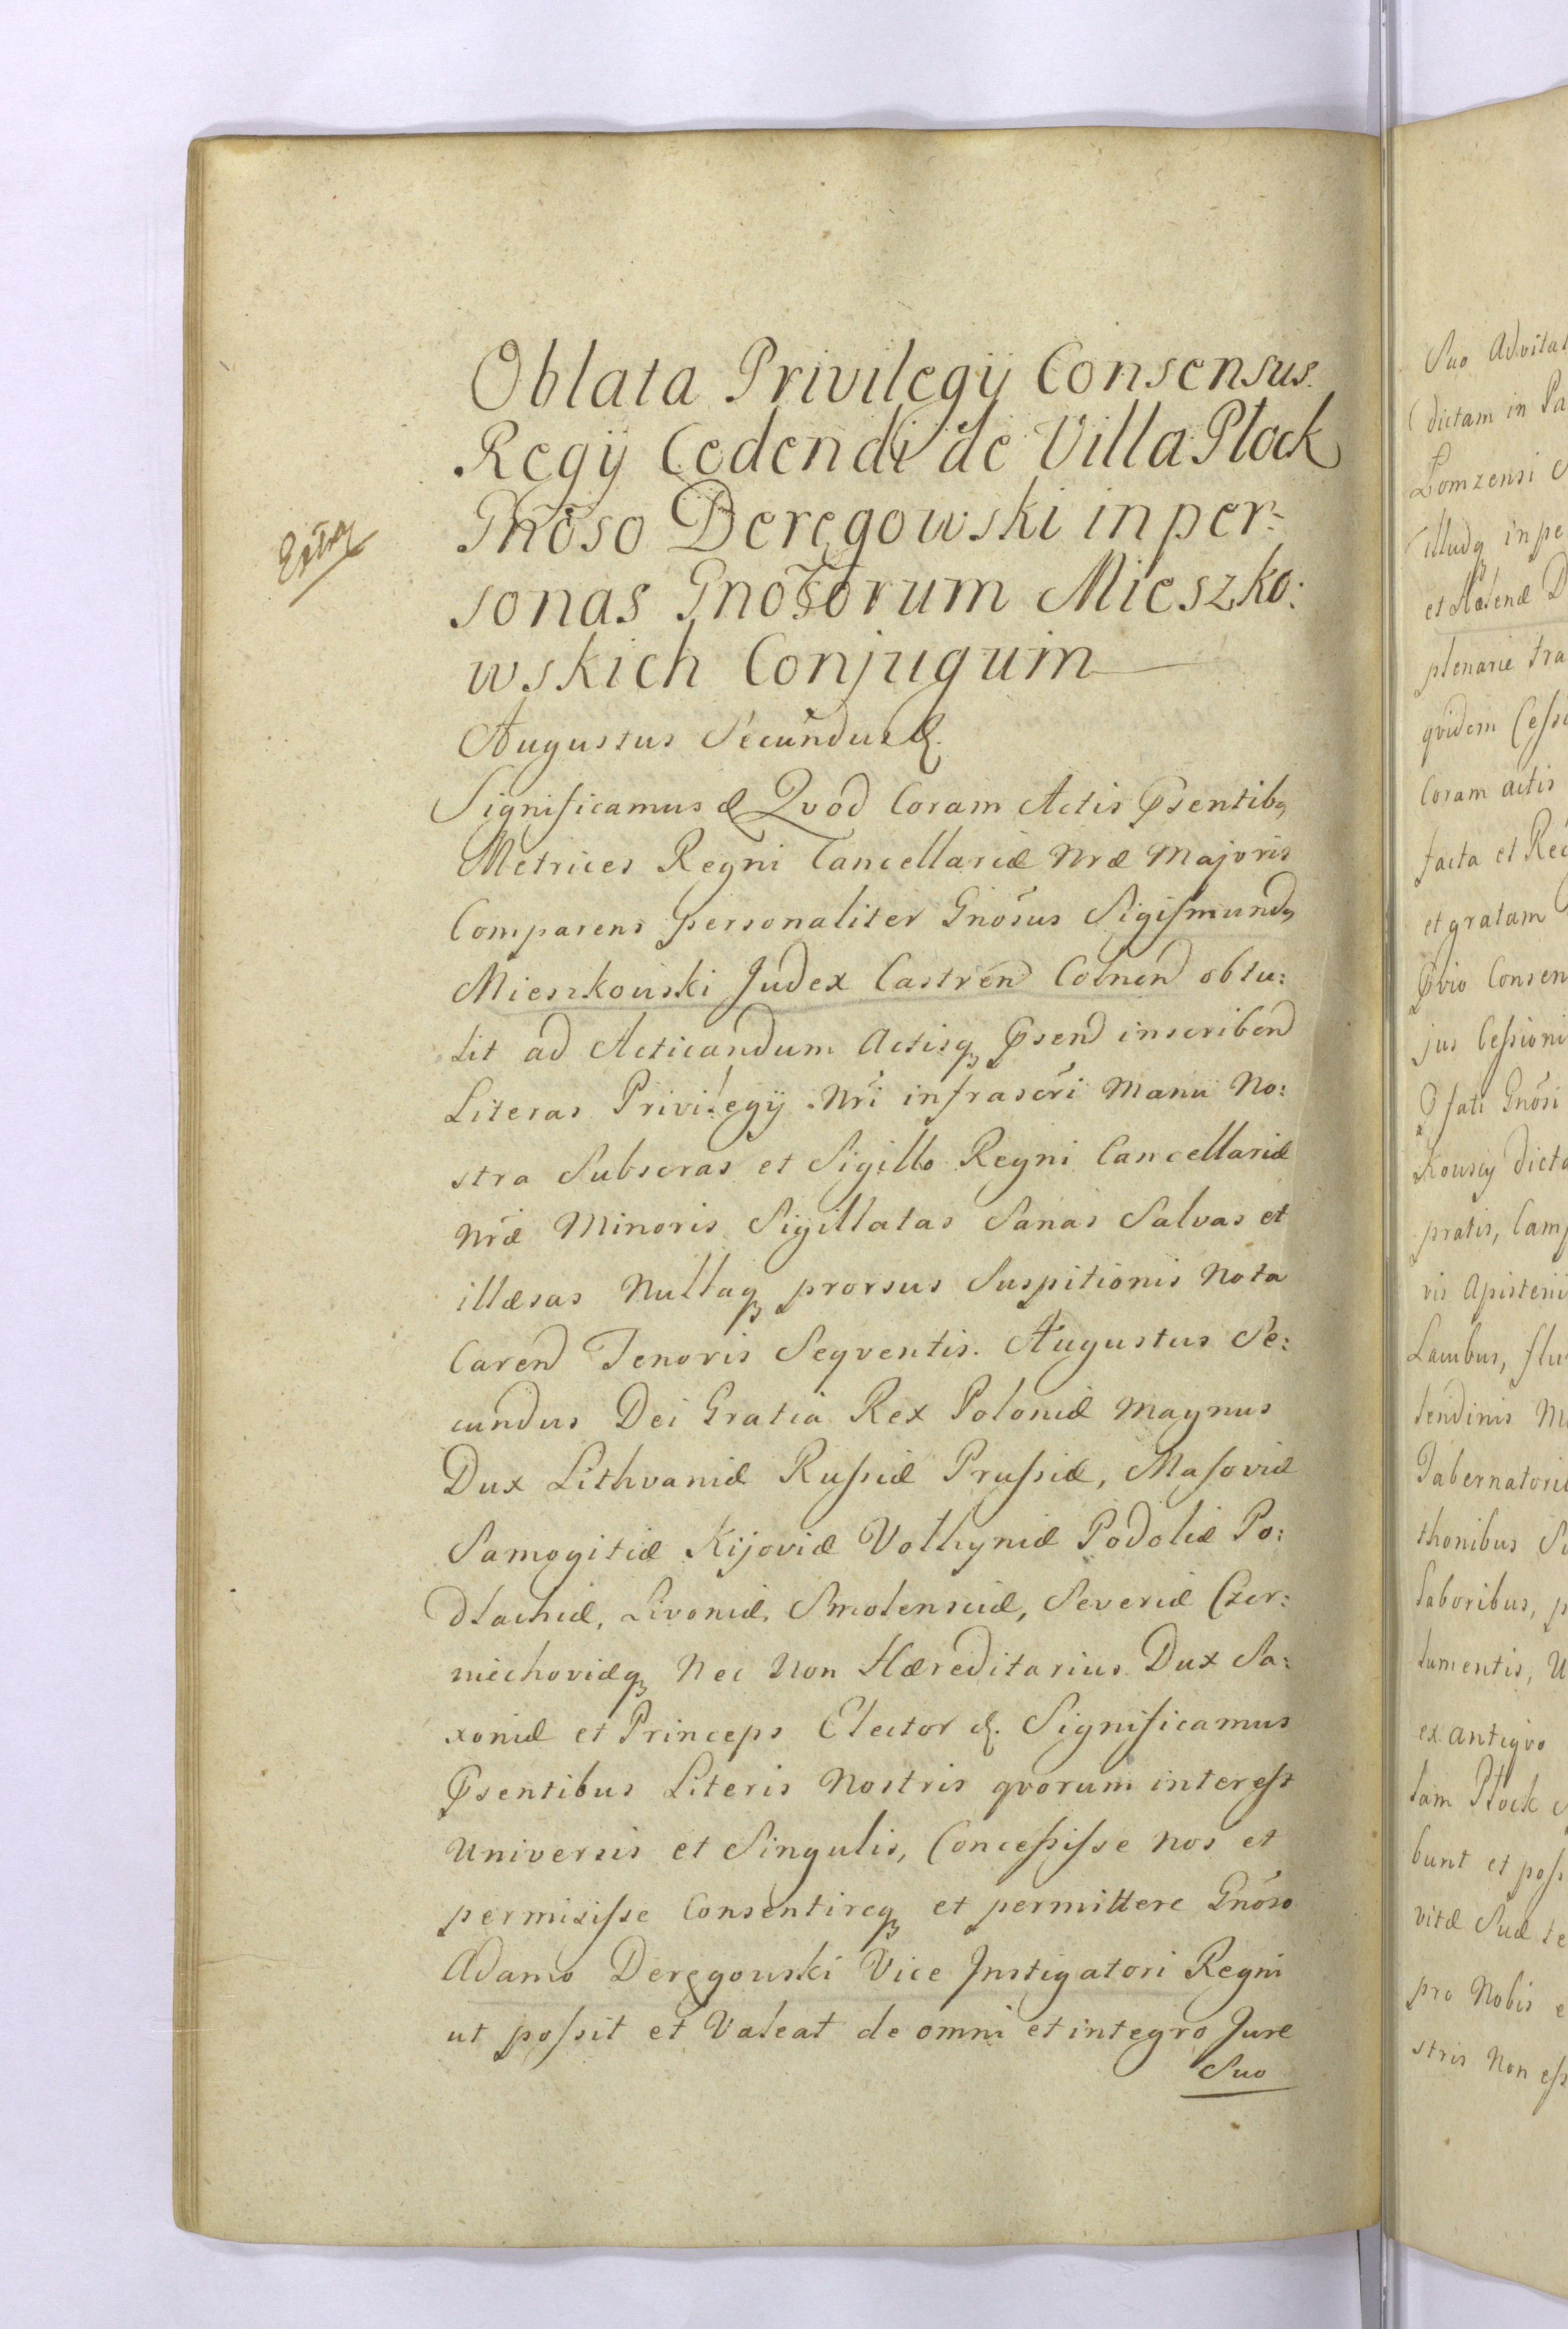 Oblata Privilegÿ Consensus
Regÿ Cedendi de Villa Płock
Gnõso Deręgowski in per-
sonas Gnõsorum Mieszko:
wskich Conjugum
Extra
Augustus Secundus &.
Significamus & Qvod Coram Actis Pṡentibq
Metrices Regni Cancellariæ Nræ Majoris
Comparens personaliter Gnõsus Sigismundq
Mieszkowski Judex Castren Colnen obtu:
lit ad Acticandum Actisq Pṡen inscriben
Literas Privilegÿ Nri infrascri Manu No:
stra Subscras et Sigillo Regni Cancellariæ
Nræ Minoris Sigillatas Sanas Salvas et
illæsas Nullaq prorsus Suspitionis Nota
Caren Tenoris Seqventis. Augustus Se:
cundus Dei Gratia Rex Poloniæ Magnus
Dux Lithvaniæ Russiæ Prussiæ, Masoviæ
Samogitiæ Kijoviæ Volhyniæ Podoliæ Po:
dlachiæ, Livoniæ, Smolensciæ, Severiæ Czer:
niechoviæq Nec Non Hæreditarius Dux Sa:
xoniæ et Princeps Elector &. Significamus
Pṡentibus Literis Nostris qvorum interest
Universis et Singulis, Concessisse Nos et
permisisse Consentireq et permittere Gnõso
Adamo Deręgowski Vice Instigatori Regni
ut possit et Valeat de omni et integro Jure
Suo
Suo Advital
dictam in Pa
Łomzensi
illudq in pe
et Halenæ D
plenarie tra
qvidem Cessi
Coram actis
facta et Rec
et gratam
Pṿio Consen
jus Cessioni
Pfati Gnõsi
kowscy dicta
pratis, Camp
Lacubus, flu
Tabernatori
laboribus, p
lumentis, U
ex antiqvo
lam Płock
bunt et poss
vitæ Suæ te
pro Nobis e
stris Non ess